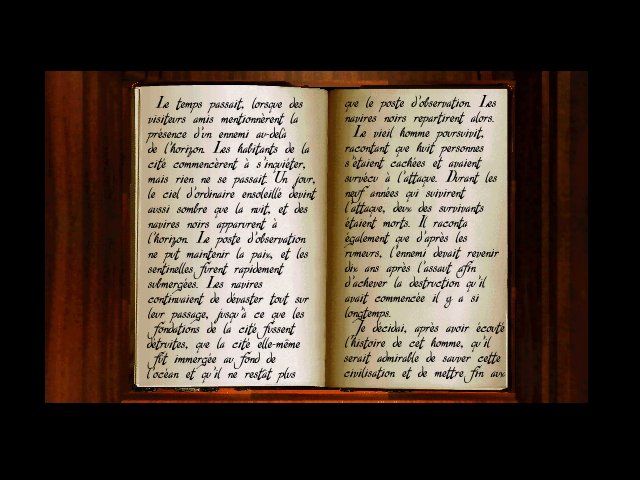 Le temps passait, lorsque des
visiteurs amis mentionnèrent la
présence d'un ennemi au-delà
de l'horizon. Les habitants de la
cité commencèrent à s'inquiéter,
mais rien ne se passait. Un jour,
le ciel d'ordinaire ensoleillé devint
aussi sombre que la nuit, et des
navires noirs apparurent à
l'horizon. Le poste d'observation
ne put maintenir la paix, et les
sentinelles furent rapidement
submergées. Les navires
continuaient de dévaster tout sur
leur passage, jusqu'à ce que les
fondations de la cité fussent
détruites, que la cité elle-même
fût immergée au fond de
l'océan et qu'il ne restât plus
que le poste d'observation. Les
navires noirs repartirent alors.
Le vieil homme poursuivit,
racontant que huit personnes
s'étaient cachées et avaient
survécu à l'attaque. Durant les
neuf années qui suivirent
l'attaque, deux des survivants
étaient morts. Il raconta
également que d'après les
rumeurs, l'ennemi devait revenir
dix ans après l'assaut afin
d'achever la destruction qu'il
avait commencée il y a si
longtemps.
Je décidai, après avoir écouté
l'histoire de cet homme, qu'il
serait admirable de sauver cette
civilisation et de mettre fin aux